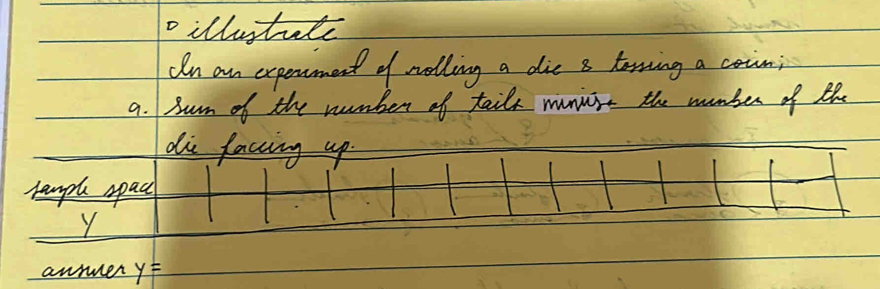 illustrate
In an experiment of rolling a die & tossing a coin;
a. Sum of the number of tails minus the number of the
die facing up.
sample space
Y
answer y=